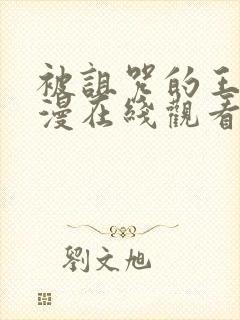 被詛咒的王
漫在綫觀看
劉文旭